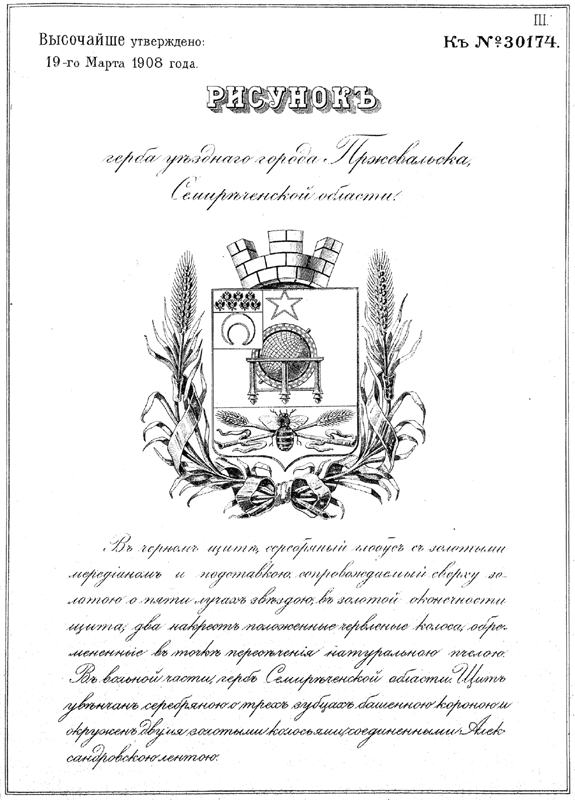 III.
Высочайше утверждено:
19-го Марта 1908 года.
Къ №30174.
РИСУНОКЪ
герба уѣзднаго города Пржевальска,
Семирѣченской области.
Въ черномъ щитѣ, серебряный глобусъ съ золотыми
меридіаномъ и подставкою, сопровождаемый сверху зо-
лотою о пяти лучахъ звѣздою, въ золотой оконечности
щита, два накрестъ положенные червленые колоса, обре-
мененные въ точкѣ пересѣченія натуральною пчелою.
Въ вольной части, гербъ Семирѣченской области. Щитъ
увѣнчанъ серебряною о трехъ зубцахъ башенною короною и
окруженъ двумя золотыми колосьями, соединенными Алек-
сандровскою лентою.